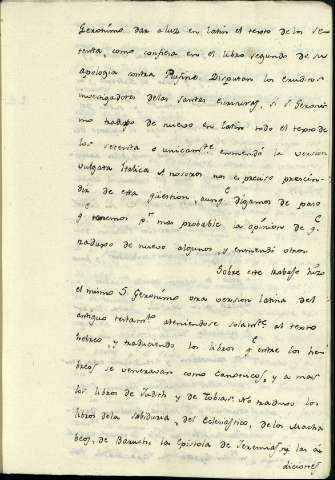 Geronimo dar a luz en latin el texto de los se-
tenta, como confiesa en el libro segundo de su
apologia contra Rufino. Disputan los eruditos
investigadores delas santas escrituras, si S. Geroni
mo traduxo de nuevo en latin todo el texto de
los setenta o unicamte enmendó la version
vulgata Italica. A nosotros nos es preciso prescin-
dir de esta qüestion, aunq digamos de paso
q tenemos pr mas probable la opinion de q
traduxo de nuevo algunos, y enmendó otros.
Sobre este trabajo hizo
el mismo S. Geronimo otra version latina del
antiguo testamto ateniendose solamte al texto
hebreo, y traduciendo los libros q entre los heb
breos se veneravan como Canonicos, y a mas
los libros de Judith y de Tobias. No traduxo los
libros dela Sabiduria, del Eclesiastico, de los Macha
beos, de Baruch, la Epistola de Jeremias, y las á
diciones